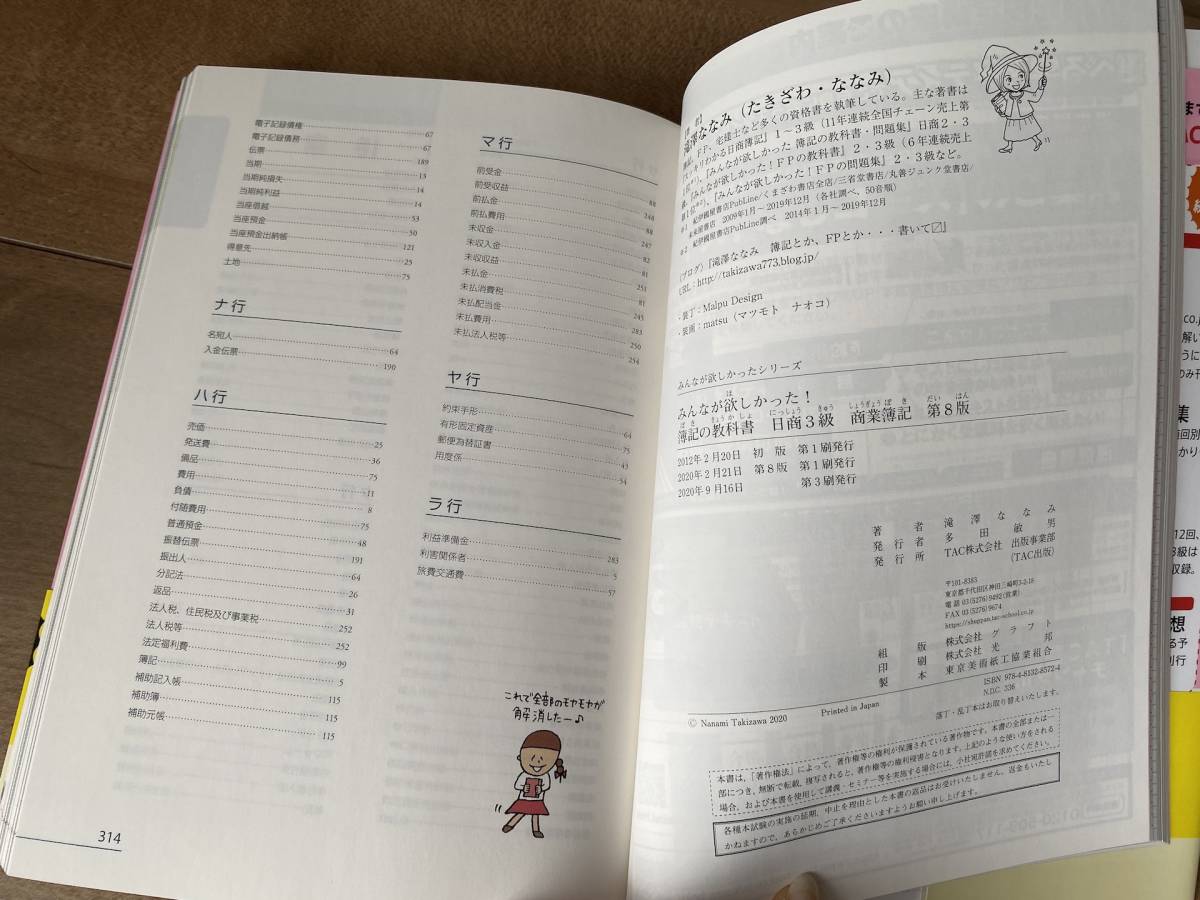 電子記録債権 67
電子記録債務 67
伝票 189
当期 13
当期純損失 14
当期純利益 14
当座借越 53
当座預金 50
当座預金出納帳 121
得意先 25
土地 75
ナ行
名宛人 64
入金伝票 190
ハ行
売価 25
発送費 36
備品 75
費用 11
負債 8
付随費用 75
普通預金 48
振替伝票 191
振出人 64
分記法 26
返品 31
法人税、住民税及び事業税 252
法人税等 252
法定福利費 99
簿記 5
補助記入帳 115
補助簿 115
補助元帳 115
314
マ行
前受金 88
前受収益 248
前払金 88
前払費用 247
未収金 82
未収入金 81
未収収益 251
未払金 81
未払消費税 245
未払配当金 283
未払費用 250
未払法人税等 254
ヤ行
約束手形 64
有形固定資産 75
郵便為替証書 43
用度係 54
ラ行
利益準備金 283
利害関係者 5
旅費交通費 57
これで全部のモヤモヤが
解消したー♪
滝澤ななみ（たきざわ・ななみ）
簿記、FP、宅建士など多くの資格書を執筆している。主な著書は
わかる日商簿記』1～3級（11年連続全国チェーン売上第
『みんなが欲しかった 簿記の教科書・問題集』日商2・3
『みんなが欲しかった！FPの教科書』2・3級（6年連続売上
第1位※2）、『みんなが欲しかった！FPの問題集』2・3級など。
※1 紀伊國屋書店PubLine/くまざわ書店全店/三省堂書店/丸善ジュンク堂書店/
未来屋書店 2009年1月～2019年12月（各社調べ、50音順）
※2 紀伊國屋書店PubLine調べ 2014年1月～2019年12月
〈ブログ〉『滝澤ななみ 簿記とか、FPとか・・・書いて〼』
URL：http://takizawa773.blog.jp/
・装丁：Malpu Design
・装画：matsu（マツモト ナオコ）
みんなが欲しかったシリーズ
みんなが欲しかった！
簿記の教科書 日商3級 商業簿記 第8版
2012年2月20日 初 版 第1刷発行
2020年2月21日 第8版 第1刷発行
2020年9月16日 第3刷発行
著 者 滝澤ななみ
発行者 多田敏男
発行所 TAC株式会社 出版事業部
（TAC出版）
〒101-8383
東京都千代田区神田三崎町3-2-18
電話 03(5276)9492(営業)
FAX 03(5276)9674
https://shuppan.tac-school.co.jp
組 版 株式会社 グラフト
印 刷 株式会社 光邦
製 本 東京美術紙工協業組合
© Nanami Takizawa 2020 Printed in Japan
ISBN 978-4-8132-8572-4
N.D.C. 336
落丁・乱丁本はお取り替えいたします。
本書は、「著作権法」によって、著作権等の権利が保護されている著作物です。本書の全部または一
部につき、無断で転載、複写されると、著作権等の権利侵害となります。上記のような使い方をされる
場合、および本書を使用して講義・セミナー等を実施する場合には、小社宛許諾を求めてください。
各種本試験の実施の延期、中止を理由とした本書の返品はお受けいたしません。返金もいたし
かねますので、あらかじめご了承くださいますようお願い申し上げます。